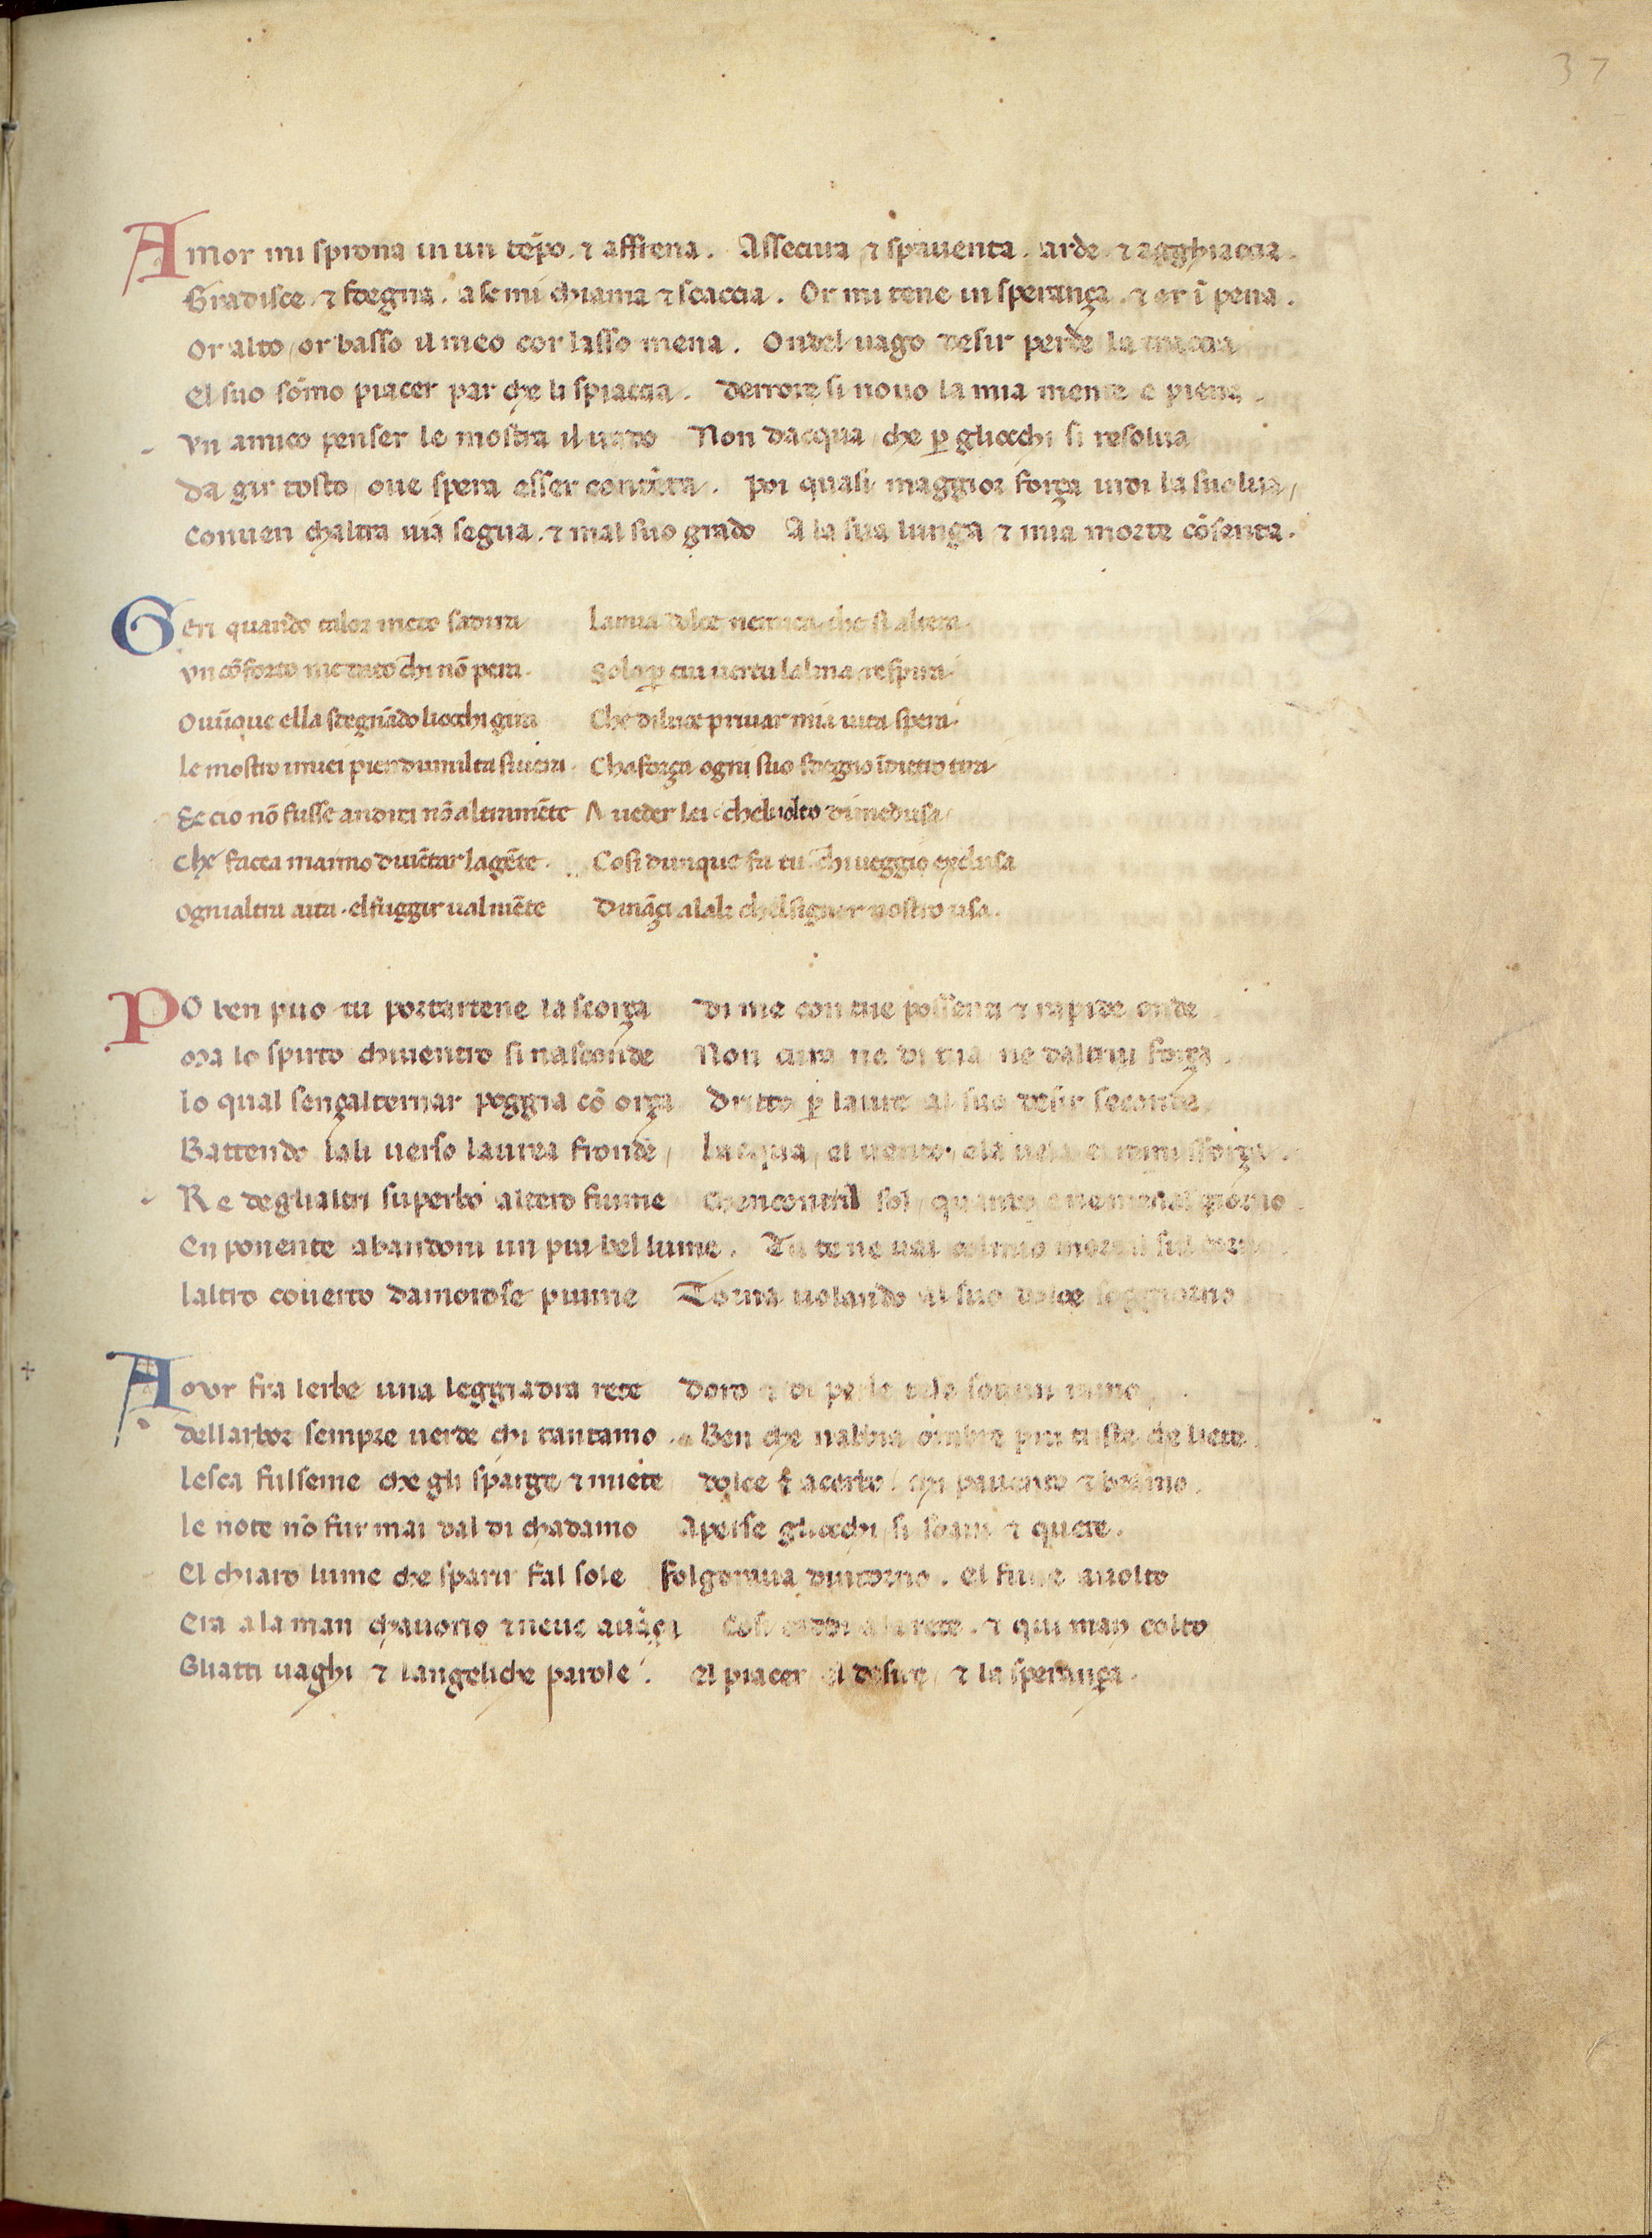 37
Amor mi sprona in un tēpo . ⁊ affrena . Assecura ⁊ spauenta . arde ⁊ agghiaccia .
Gradisce . ⁊ sdegna . a se mi chiama ⁊ scaccia . Or mi tene in sperança . ⁊ or ī pena .
Or alto / or basso il meo cor lasso mena . Ondel uago desir perde la traccia
El suo sōmo piacer par che li spiaccia . Derrore si nouo la mia mente e piena .
Vn amico penser le mostra il uado Non dacqua che ꝑ gliocchi si resolua
Da gir tosto / oue spera esser contēta . Poi quasi maggior força indi la suolua /
Conuen chaltra uia segua . ⁊ mal suo grado A la sua lunga ⁊ mia morte cōsenta .
Geri quando talor meco sadira La mia dolce nemica che si altera .
Vn cōforto me dato chi nō pera . Solo ꝑ cui uertu lalma respira .
Ouūque ella sdegnādo liocchi gira Che di luce priuar mia uita spera .
Le mostro imiei pien dumilta si ueri . Cha força ogni suo sdegno īdietro tira
Se cio nō fusse andrei nō altramēte A ueder lei cheluolto di medusa
Che facea marmo diuētar lagēte . Cosi dunque fa tu chi ueggio exclusa
Ognialtra aita . elfuggir ual niēte Dināçi alali chelsignor nostro usa .
PO ben puo tu portartene la scorça Di me con tue possenti ⁊ rapide onde
Ma lo spirto chiuentro si nasconde Non cura ne di tua ne daltrui força .
Lo qual sençalternar poggia cō orça Dritto ꝑ laure al suo desir seconde
Battendo lali uerso laurea fronde / Lacqua / el uento / ela uela ei remi sforça .
Re deglialtri superbo altero fiume Chencontril sol quando ne mena il giorno .
En ponente abandoni un piu bel lume . Tu te ne uai col mio mortal sul corno
Laltro couerto damorose piume Torna uolando al suo dolce soggiorno
Amor fra lerbe una leggiadra rete Doro ⁊ di perle tese sottun ramo
Dellarbor sempre uerde chi tantamo . Ben che nabbia ombre piu triste che liete .
Lesca fulseme che gli sparge ⁊ miete Dolce ⁊ acerbo . chi pauento ⁊ bramo .
Le note nō fur mai dal di chadamo Aperse gliocchi si soaui ⁊ quete .
El chiaro lume che sparir fal sole Folgoraua dintorno . el fune auolto
Era a la man chauorio ⁊ neue auāça Cosi caddi a la rete . ⁊ qui man colto
Gliatti uaghi ⁊ langeliche parole . El piacer el desire ⁊ la sperança .